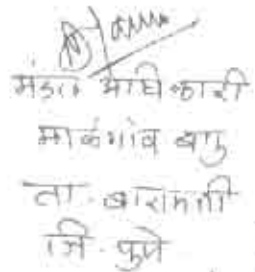 मंडल अधिकारी
माळेगांव बु
ता. बारामती
जि. पुणे